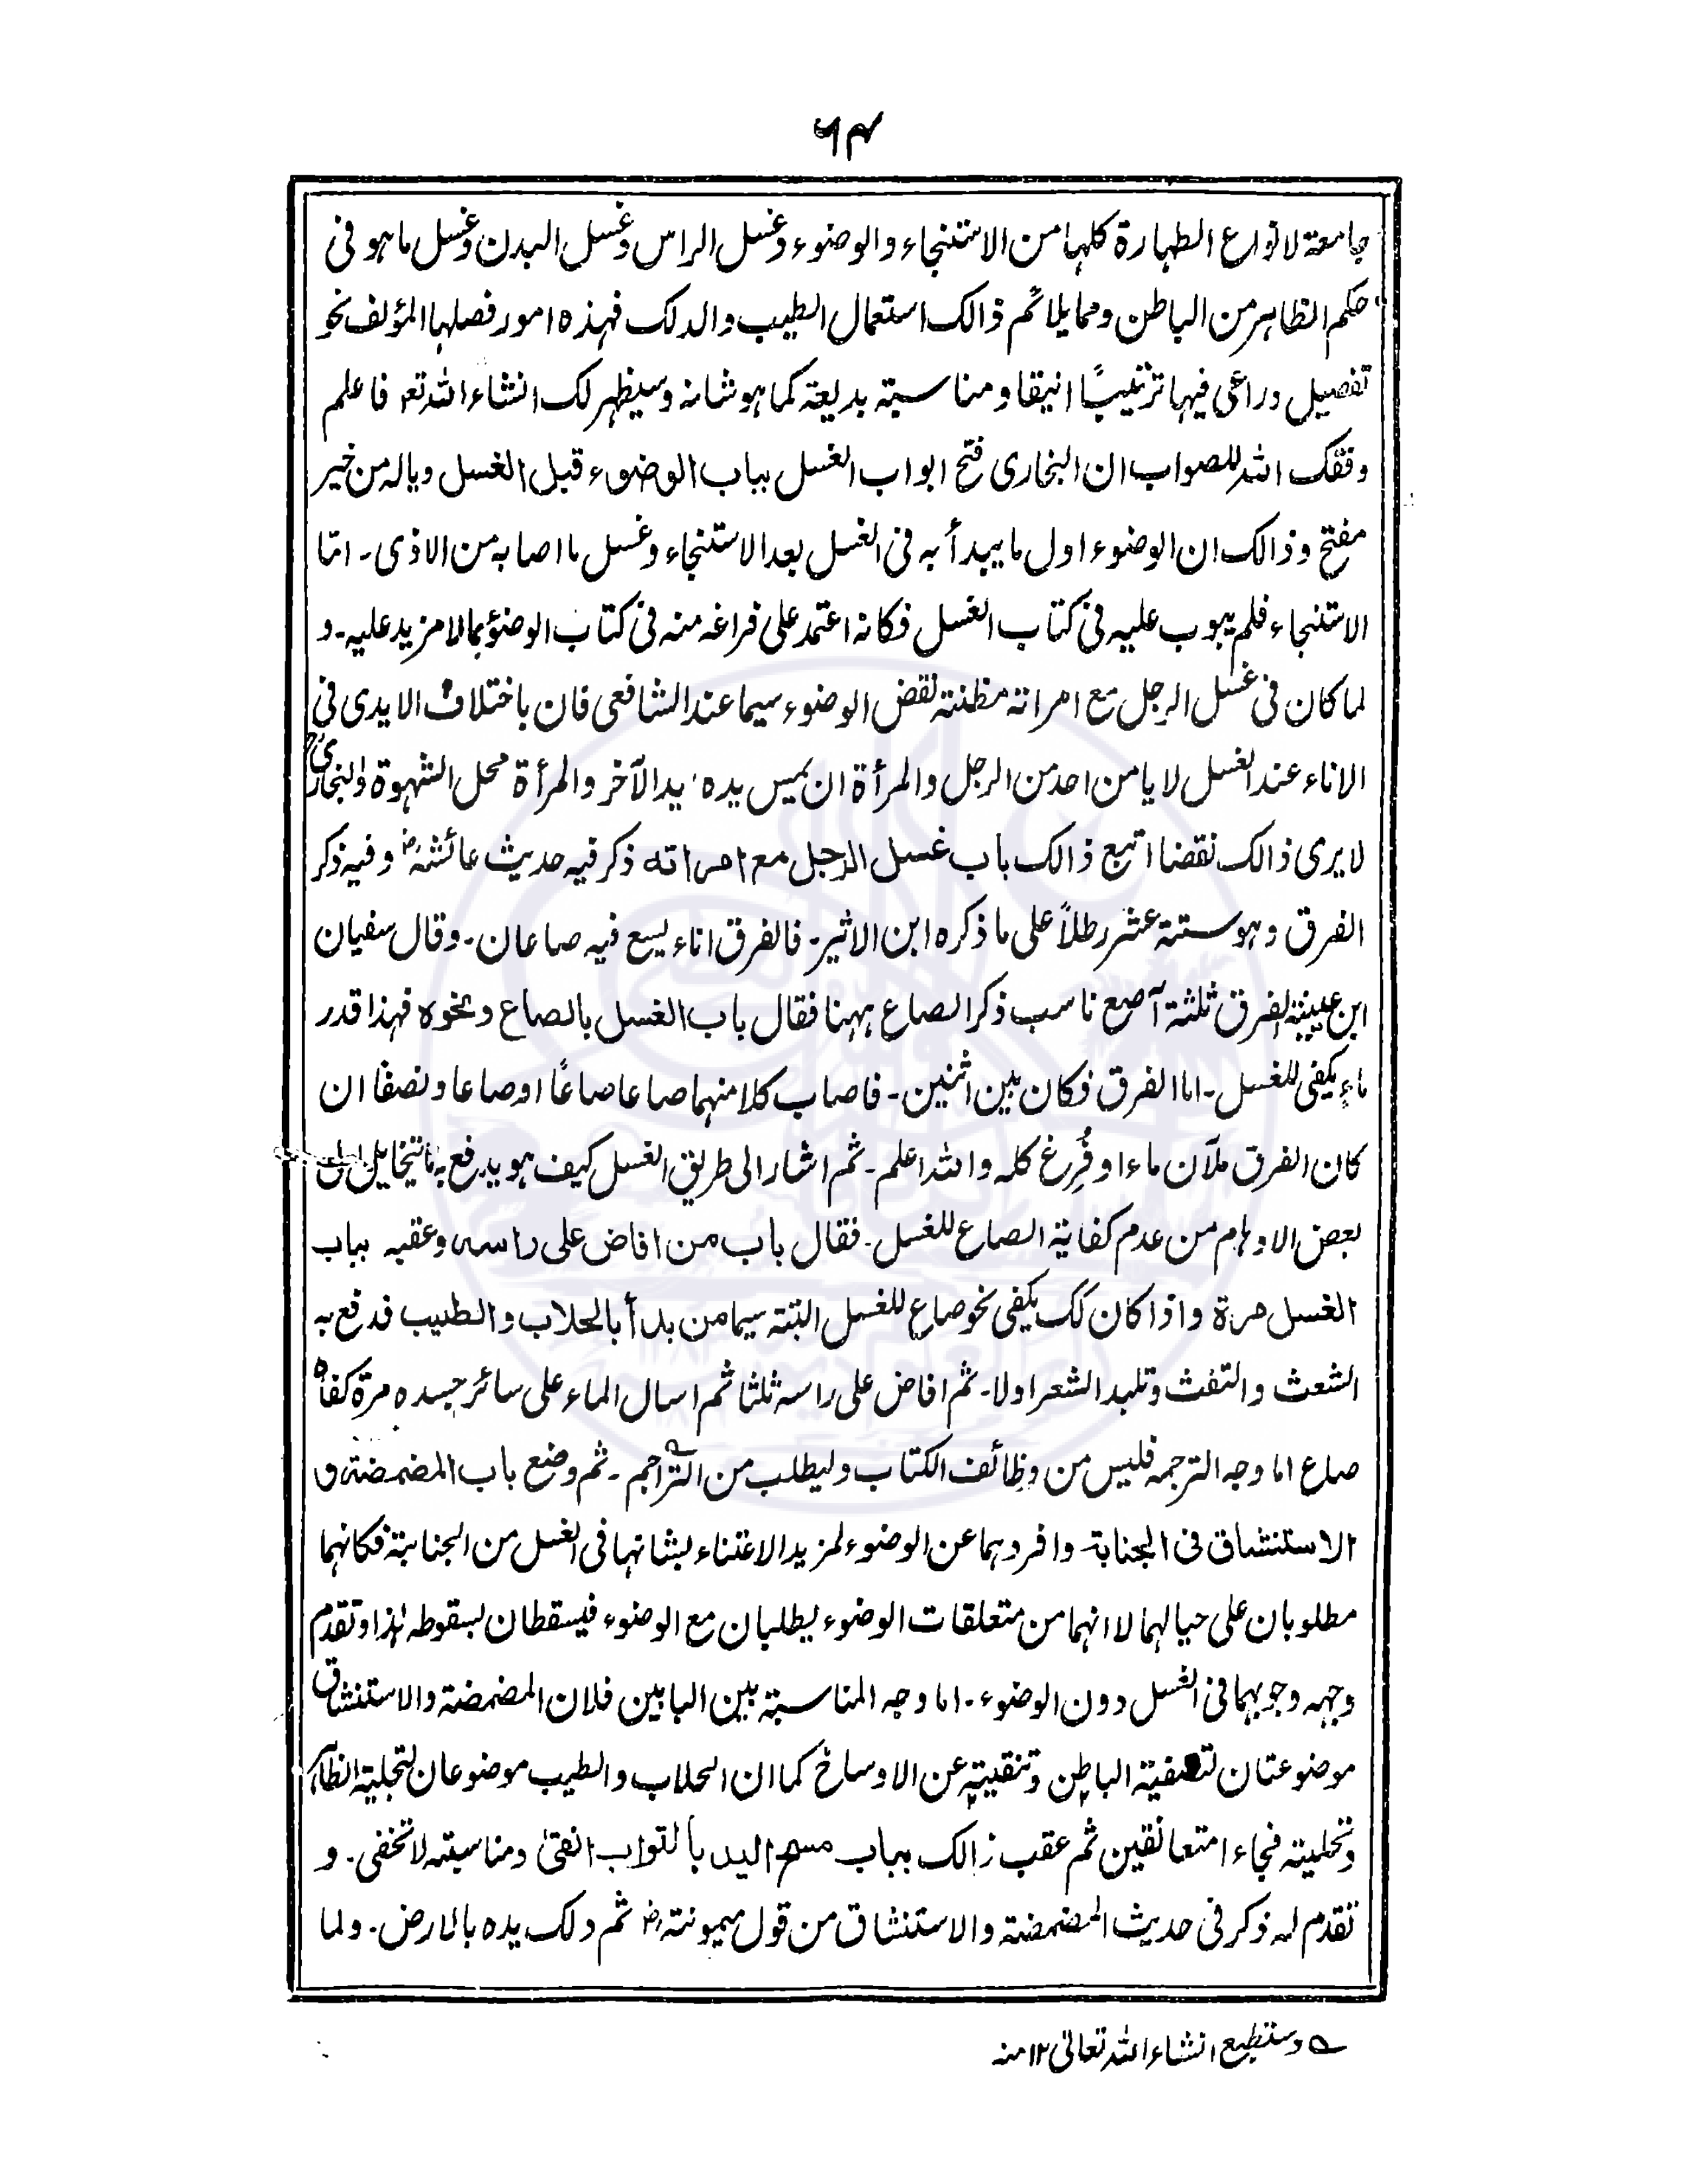 ۶۴
جامعة لانواع الطهارة كلها من الاستنجاء والوضوء وغسل الراس وغسل البدن وغسل ما هو فى
حكم الظاهر من الباطن ومما يلائم ذالک استعمال الطيب والدلک فهذه امور فصلها المؤلف نحو
تفصيل وراعى فيها ترتيبًا انيقا ومناسبة بديعة كما هو شانه وسيظهر لک انشاء الله تعه فاعلم
وفقک الله للصواب ان البخارى فتح ابواب الغسل بباب الوضوء قبل الغسل وياله من خير
مفتح وذالک ان الوضوء اول ما يبدأ به فى الغسل بعد الاستنجاء وغسل ما اصابه من الاذى۔ امّا
الاستنجاء فلم يبوب عليه فى كتاب الغسل فكانه اعتمد على فراغه منه فى كتاب الوضوٴ بمالا مزيد عليه۔ و
لما كان فى غسل الرجل مع امراته مظنة نقض الوضوء سيما عند الشافعى فان باختلاف الايدى فى
الاناء عند الغسل لا يامن احد من الرجل والمرأة ان يمس يده يد الآخر والمرأة محل الشهوة والبخارى
لا يرى ذالک نقضا اتبع ذالک باب غسل الرجل مع امراته ذكر فيه حديث عائشةؓ وفيه ذكر
الفرق وهو ستة عشر رطلاً على ما ذكره ابن الاثير۔ فالفرق اناء يسع فيه صاعان۔ وقال سفيان
ابن عيينة الفرق ثلثة آصع ناسب ذكر الصاع ههنا فقال باب الغسل بالصاع ونحوه فهذا قدر
ماءٍ يكفى للغسل۔ اما الفرق فكان بين اثنين۔ فاصاب كلا منهما صاعا صاعًا او صاعا ونصفا ان
كان الفرق ملآن ماء او فُرِغ كله والله اعلم۔ ثم اشار الى طريق الغسل كيف هو يدفع به ما يتخايل الى
بعض الاوهام من عدم كفاية الصاع للغسل۔ فقال باب من افاض على راسه وعقبه بباب
الغسل مرة واذا كان كک يكفى نحو صاع للغسل البتة سيما من بدأ بالحلاب والطيب فدفع به
الشعث والتفث وتلبد الشعر اولا۔ ثم افاض على راسه ثلثا ثم اسال الماء على سائر جسده مرة كفاه
صاع اما وجه الترجمه فليس من وظائف الكتاب وليطلب من التراجم۔ ثم وضع باب المضمضة و
الاستنشاق فى الجنابة وافردهما عن الوضوء لمزيد الاعتناء بشانها فى الغسل من الجنابة فكانهما
مطلوبان على حيالهما لا انهما من متعلقات الوضوء يطلبان مع الوضوء فيسقطان بسقوطه هٰذا وتقدم
وجهه وجوبهما فى الغسل دون الوضوء۔ اما وجه المناسبة بين البابين فلان المضمضة والاستنشاق
موضوعتان لتصفية الباطن وتنقيته عن الاوساخ كما ان الحلاب والطيب موضوعان لتجلية الظاهر
وتحليته فجاء امتعانقين ثم عقب زالک بباب مسح اليد بالتراب انقىٰ ومناسبته لا تخفى۔ و
تقدم له ذكر فى حديث المضمضة والاستنشاق من قول ميمونةؓ ثم دلک يده بالارض۔ ولما
ے وستطيع انشاء الله تعالىٰ ۱۲ منه